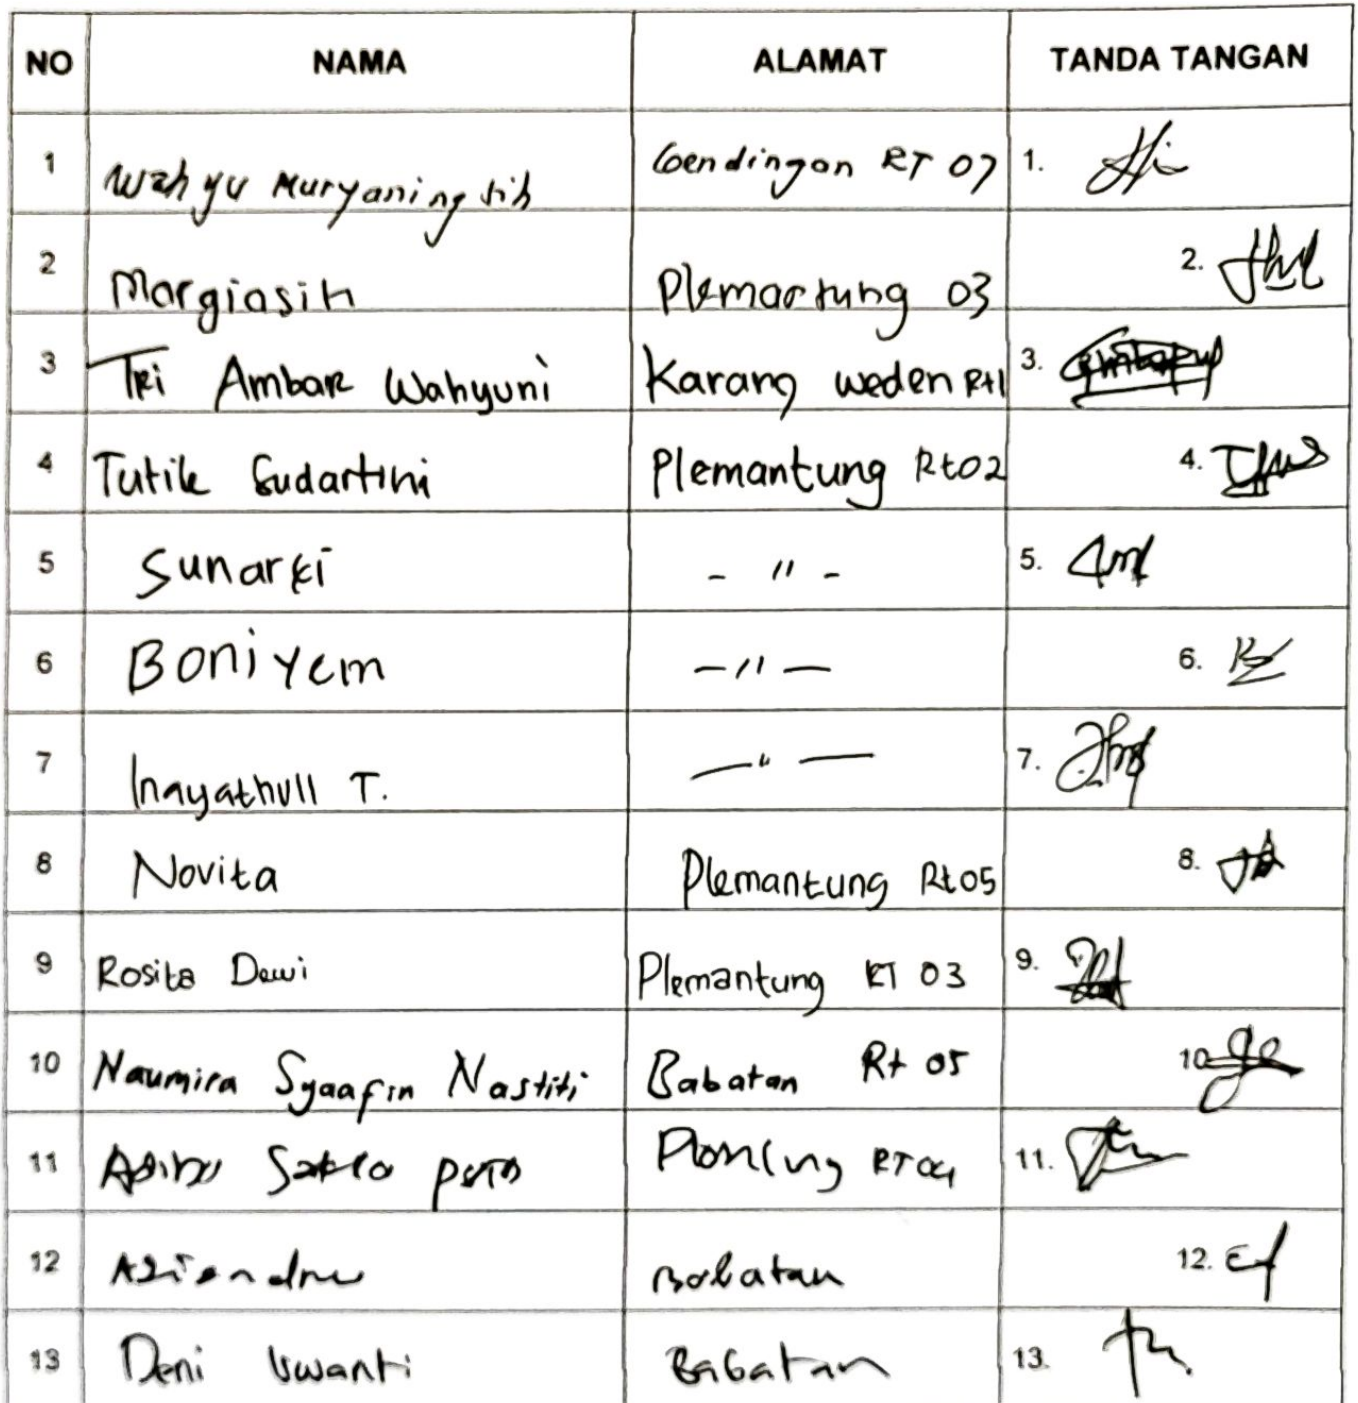 NO NAMA ALAMAT TANDA TANGAN
1 Wahyu Muryaningsih Gendingan RT 07 1.
2 Margiasih Plemantung 03 2.
3 Tri Ambar Wahyuni Karang weden Rt1 3.
4 Tutik Sudartini Plemantung Rt02 4.
5 Sunarti - " - 5.
6 Boniyem - " - 6.
7 Inayathull T. - " - 7.
8 Novita Plemantung Rt05 8.
9 Rosita Dewi Plemantung RT 03 9.
10 Naumira Syaafin Nastiti Babatan Rt 05 10
11 RT 04 11.
12 Babatan 12.
13 Deni Uswanti Babatan 13.